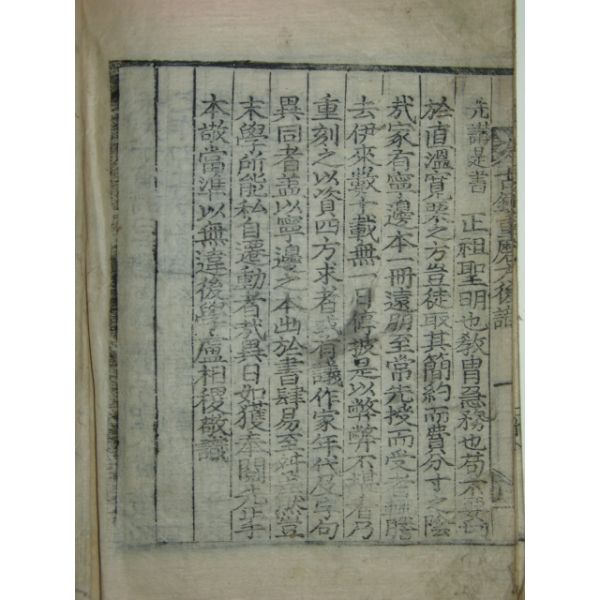 先講是書 正祖聖明也敎胄急務也苟不
於直溫寬栗之方豈徒取其簡約而費分寸之陰
哉家有寧邊本一冊遠朋至常先授而受者
去伊來數十載無一日停披是以弊弊不 者乃
重刻之以資四方求者 有議作家年代及字句
異同者盖以寧邊之本出於書肆易至 然豈
末學所能私自遷動者哉異日如獲奉 先正手
本敬當準以無違後學盧相稷敬識